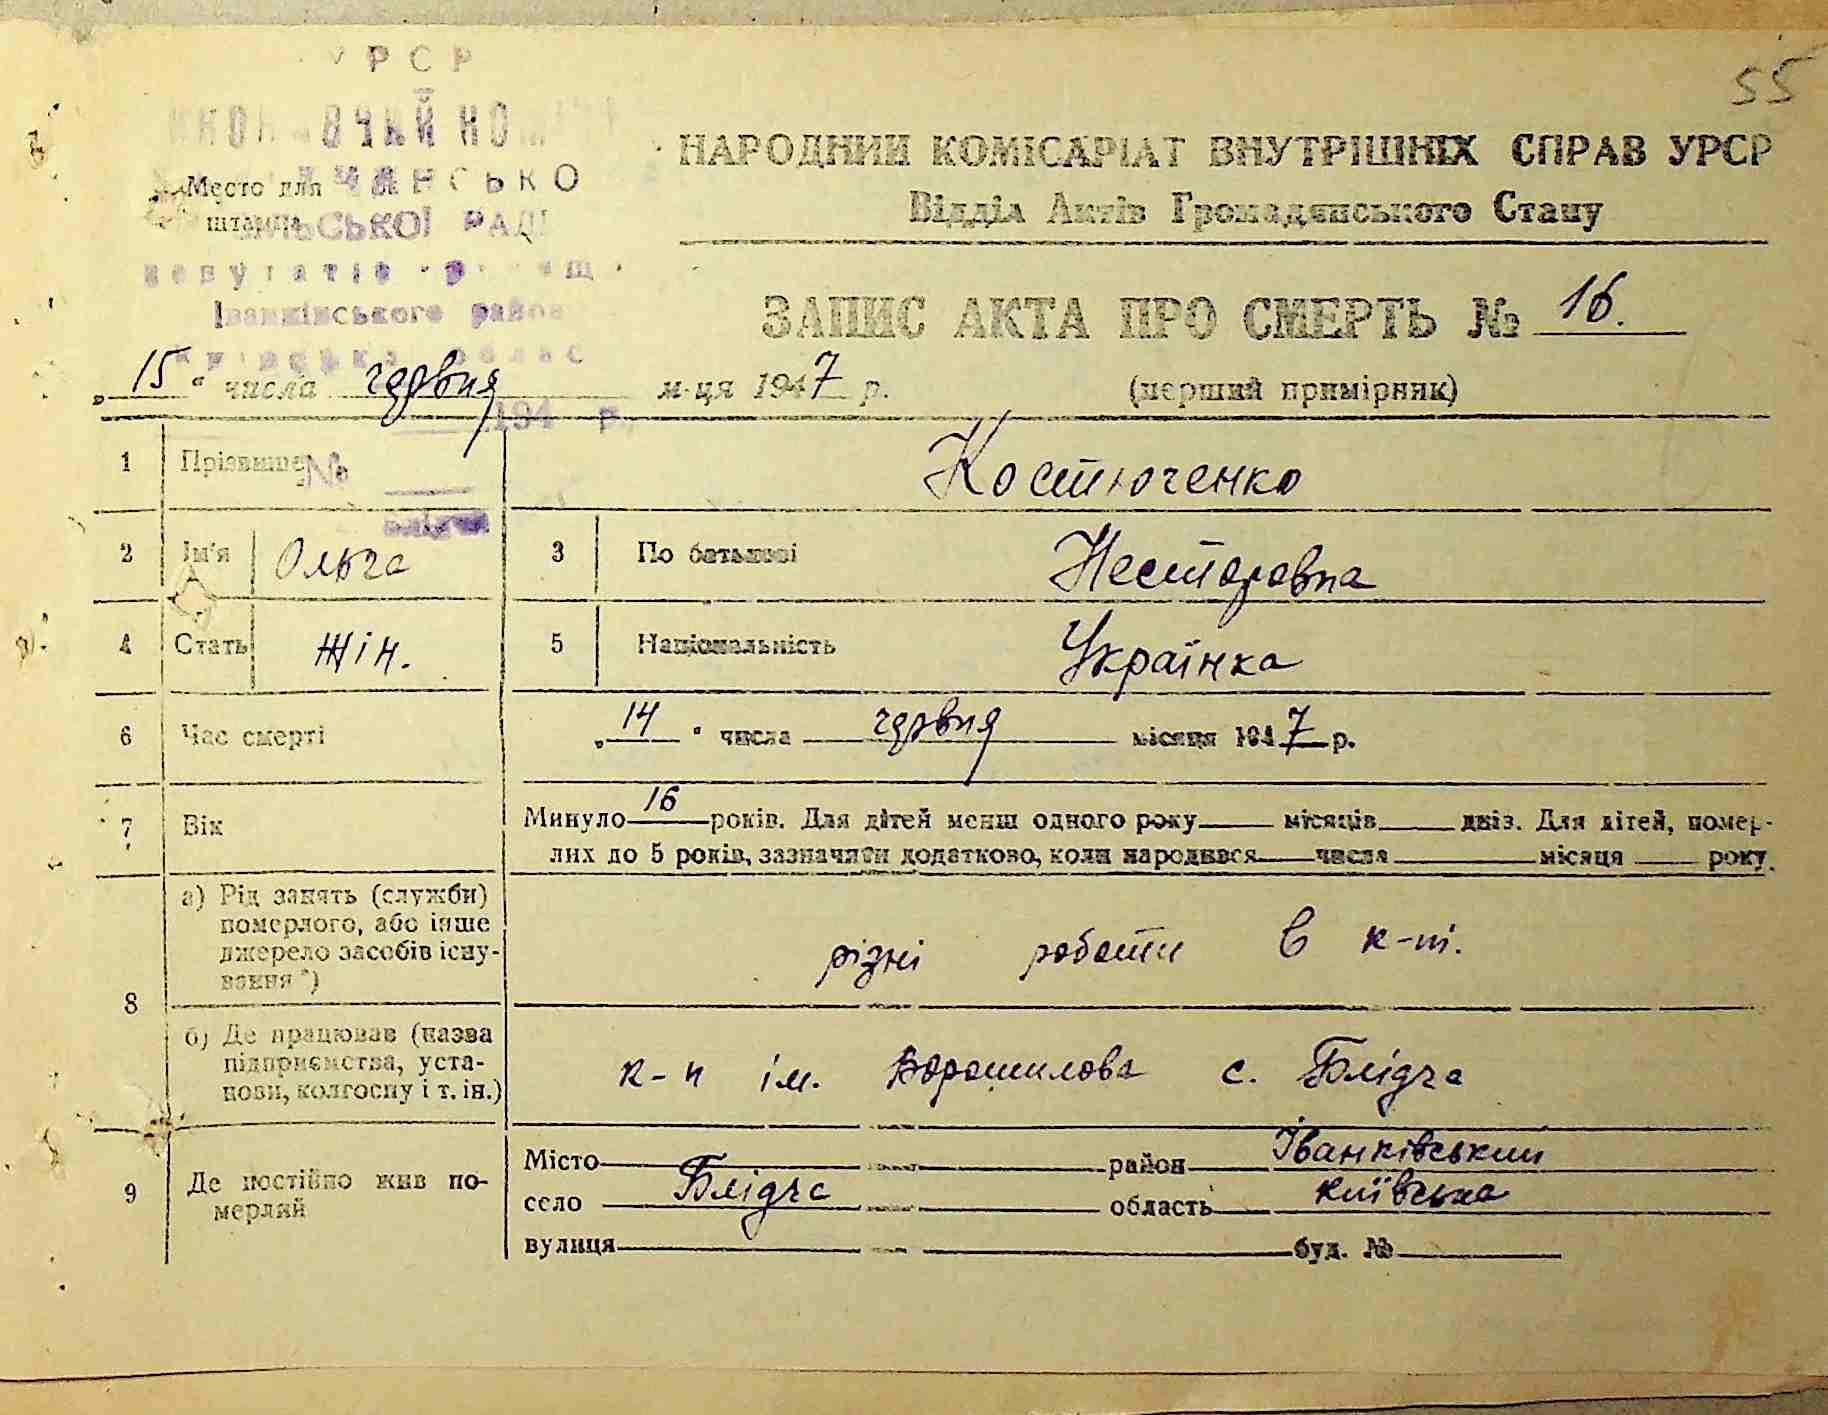 55
УРСР
Место для
штампа
СІЛЬСЬКОЇ РАДИ
депутатів
Іванківського району
194 р.
№
НАРОДНИЙ КОМІСАРІАТ ВНУТРІШНІХ СПРАВ УРСР
Відділ Актів Громадянського Стану
ЗАПИС АКТА ПРО СМЕРТЬ № 16.
„15“ числа червня м-ця 1947 р.
(перший примірник)
1 Прізвище Костюченко
2 Ім'я Ольга 3 По батькові Несторовна
4 Стать Жін. 5 Національність Українка
6 Час смерті „14“ числа червня місяця 1947 р.
7 Вік Минуло 16 років. Для дітей менш одного року місяців днів. Для дітей, помер-
лих до 5 років, зазначити додатково, коли народився числа місяця року.
8 а) Рід занять (служби)
померлого, або інше
джерело засобів існу-
вання *)
різні роботи в к-пі.
б) Де працював (назва
підприємства, уста-
нови, колгоспу і т. ін.)
к-п ім. Ворошилова с. Блідча
9 Де постійно жив по-
мерлий
Місто район Іванківський
село Блідча область Київська
вулиця буд. №